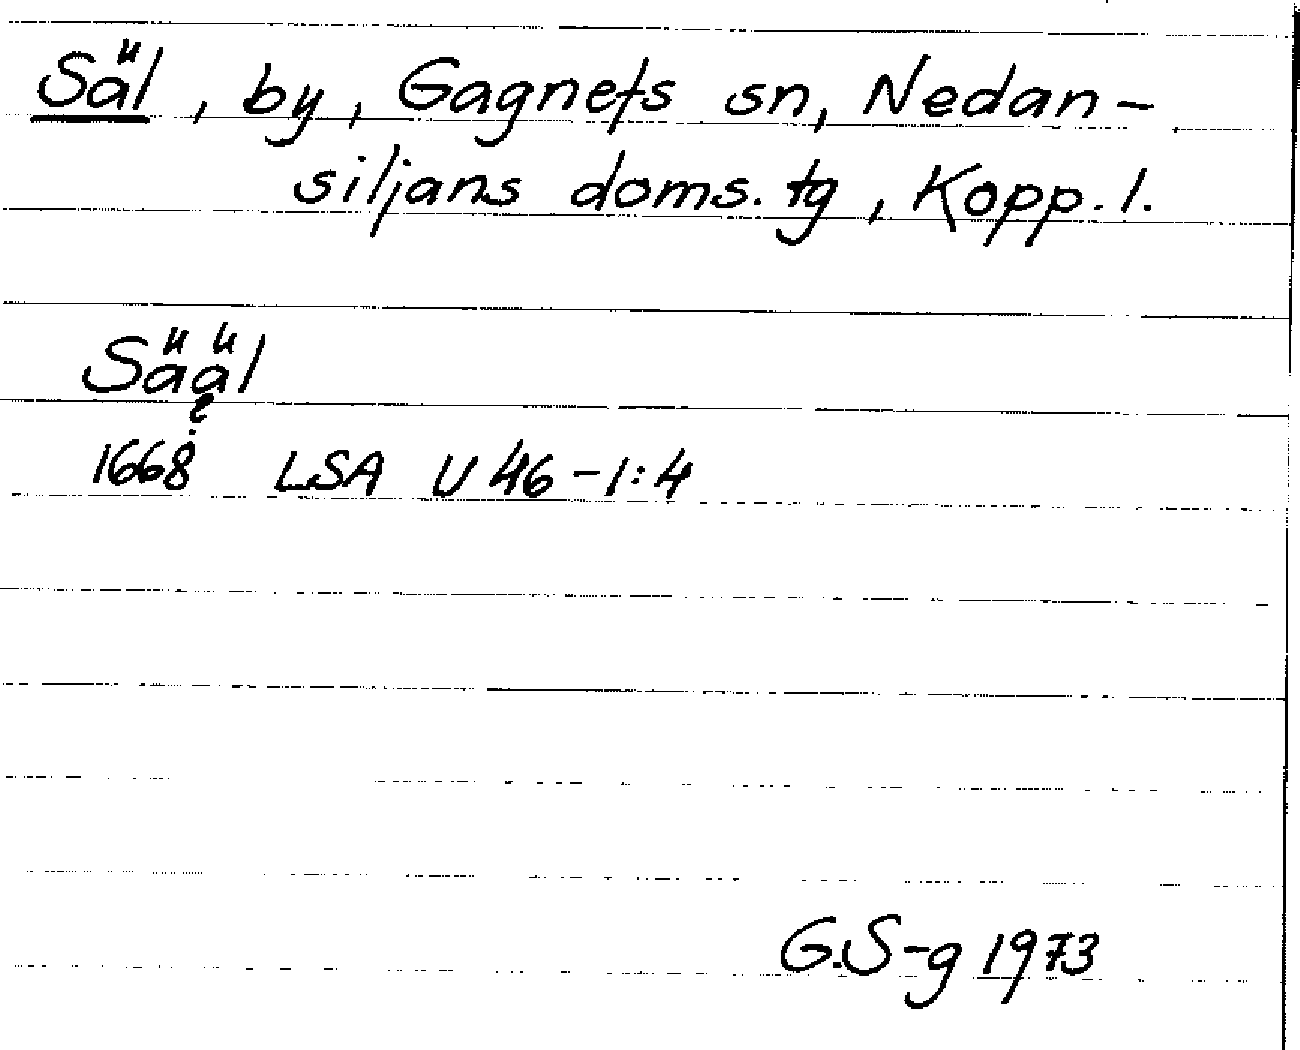 Säl, by, Gagnefs sn, Nedan-
siljans doms. tg, Kopp. l.
Sääl
?
1668 LSA U 46-1:4
G.S-g 1973